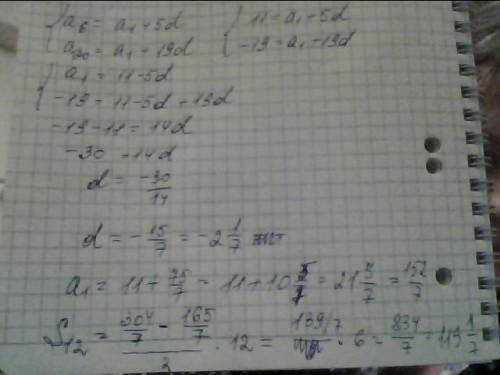 { a₆ = a₁ + 5d { 11 = a₁ + 5d
a₂₀ = a₁ + 19d -19 = a₁ + 19d
{ a₁ = 11 - 5d
-19 = 11 - 5d + 19d
-19 - 11 = 14d
-30 = 14d
d = -30/14
d = -15/7 = -2 1/7
a₁ = 11 + 75/7 = 11 + 10 5/7 = 21 5/7 = 152/7
S₁₂ = (304/7 - 165/7)/2 · 12 = 139/7 · 6 = 834/7 = 119 1/7